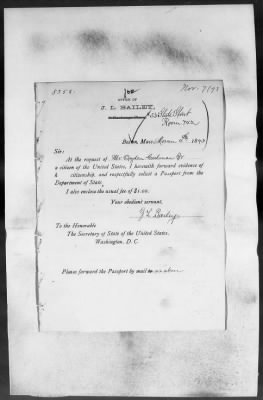 8358.
Nov. 7/93
OFFICE OF
J. L. BAILEY,
53 State Street
Room 742
Boston, Mass. 6th, 1893
Sir:
At the request of Mr. Cushman Jr
a citizen of the United States, I herewith forward evidence of
h citizenship, and respectfully solicit a Passport from the
Department of State.
I also enclose the usual fee of $1.00.
Your obedient servant,
J. L. Bailey
To the Honorable
The Secretary of State of the United States,
Washington, D. C.
Please forward the Passport by mail to